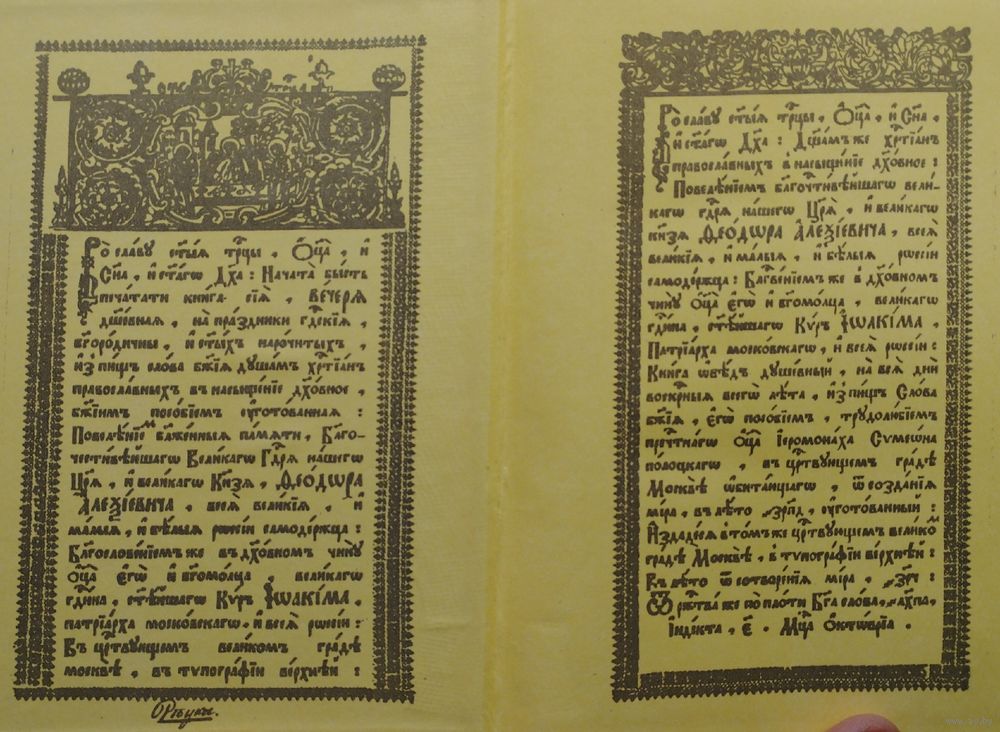 Во славу ст҃ы́ѧ трⷪ҇цы, Ѻ҆ц҃а̀, и҆
Сн҃а, и҆ ст҃а́гѡ Дх҃а: Нача́та бы́сть
печа́тати кни́га сїѧ̀, ВЕ́ЧЕРѦ
дꙋше́внаѧ, на пра́здники гдⷭ҇кїѧ,
бг҃оро́дичны, и҆ ст҃ы́хъ нарочи́тыхъ,
и҆з̾ пи́щъ сло́ва бж҃їѧ дꙋша́мъ хрⷭ҇тїа́нъ
правосла́вныхъ в насыще́нїе дх҃о́вное,
бж҃їимъ посо́бїемъ ᲂу҆гото́ваннаѧ:
Повелѣ́нїемъ бл҃же́нныѧ па́мѧти, Бл҃го-
чести́вѣйшагѡ Вели́кагѡ Гдⷭ҇рѧ на́шегѡ
Цр҃ѧ̀, и҆ вели́кагѡ Кнѧ́зѧ, Ѳео́дѡра
А҆леѯі́евича, всеѧ̀ вели́кїѧ, и҆
ма́лыѧ, и҆ бѣ́лыѧ рѡссі́и самоде́ржца:
Бл҃гослове́нїемъ же в дх҃о́вномъ чи́нꙋ
ѻ҆ц҃а̀ Е҆гѡ̀ и҆ бг҃омо́лца, вели́кагѡ
гдⷭ҇и́на, ст҃ѣ́йшагѡ Кѵ́ръ І҆ѡаки́ма,
патрїа́рха моско́вскагѡ, и҆ всеѧ̀ рѡссі́и:
Въ црⷭ҇твꙋющемъ вели́комъ гра́дѣ
москвѣ̀, въ тѵпогра́фїи ве́рхнѣй:
Ѻ҆
Во сла́вꙋ ст҃ы́ѧ трⷪ҇цы, Ѻ҆ц҃а̀, и҆ Сн҃а,
и҆ ст҃а́гѡ Дх҃а: Дш҃а́мъ же хрⷭ҇тїа́нъ
правосла́вныхъ в насыще́нїе дх҃о́вное:
Повелѣ́нїемъ бл҃гочⷭ҇ти́вѣйшагѡ вели́-
кагѡ гдⷭ҇рѧ на́шегѡ Цр҃ѧ̀, и҆ вели́кагѡ
кнѧ́зѧ Ѳео́дѡра А҆леѯі́евича, всеѧ̀
вели́кїѧ, и҆ ма́лыѧ, и҆ бѣ́лыѧ рѡссі́и
самоде́ржца: Бл҃гве́нїемъ же в дх҃о́вномъ
чи́нꙋ ѻ҆ц҃а̀ Е҆гѡ̀ и҆ бг҃омо́лца, вели́кагѡ
гдⷭ҇и́на, ст҃ѣ́йшагѡ Кѵ́ръ І҆ѡаки́ма,
Патрїа́рха моско́вскагѡ, и҆ всеѧ̀ рѡссі́и:
Кни́га ѡ҆бѣ́дъ дꙋше́вный, на всѧ̑ дни̑
воскрⷭ҇ныѧ всегѡ̀ лѣ́та, и҆з̾ пи́щъ Сло́ва
бж҃їѧ, є҆гѡ̀ посо́бїемъ, трꙋдолю́бїемъ
пречⷭ҇тнагѡ ѻ҆ц҃а̀ І҆еромона́ха Сѵмеѡ́на
по́лоцкагѡ, въ црⷭ҇твꙋющемъ гра́дѣ
Москвѣ̀ ѡ҆бита́ющагѡ, ѿ созда́нїѧ
мі́ра, въ лѣ́то ҂зрп҃д, ᲂу҆гото́ванный:
И҆здаде́сѧ в то́мъ же црⷭ҇твꙋющемъ вели́комъ
гра́дѣ Москвѣ̀, в тѵпогра́фїи ве́рхнѣй:
Въ лѣ́то ѿ сотворе́нїѧ мі́ра, ҂зр҃ч:
Ѿ ржⷭ҇тва́ же по пло́ти Бг҃а сло́ва, ҂ахп҃а,
і҆нді́кта, є҃. Мцⷭ҇а Ѻ҆ктѡ́врїа.
www.ay.by